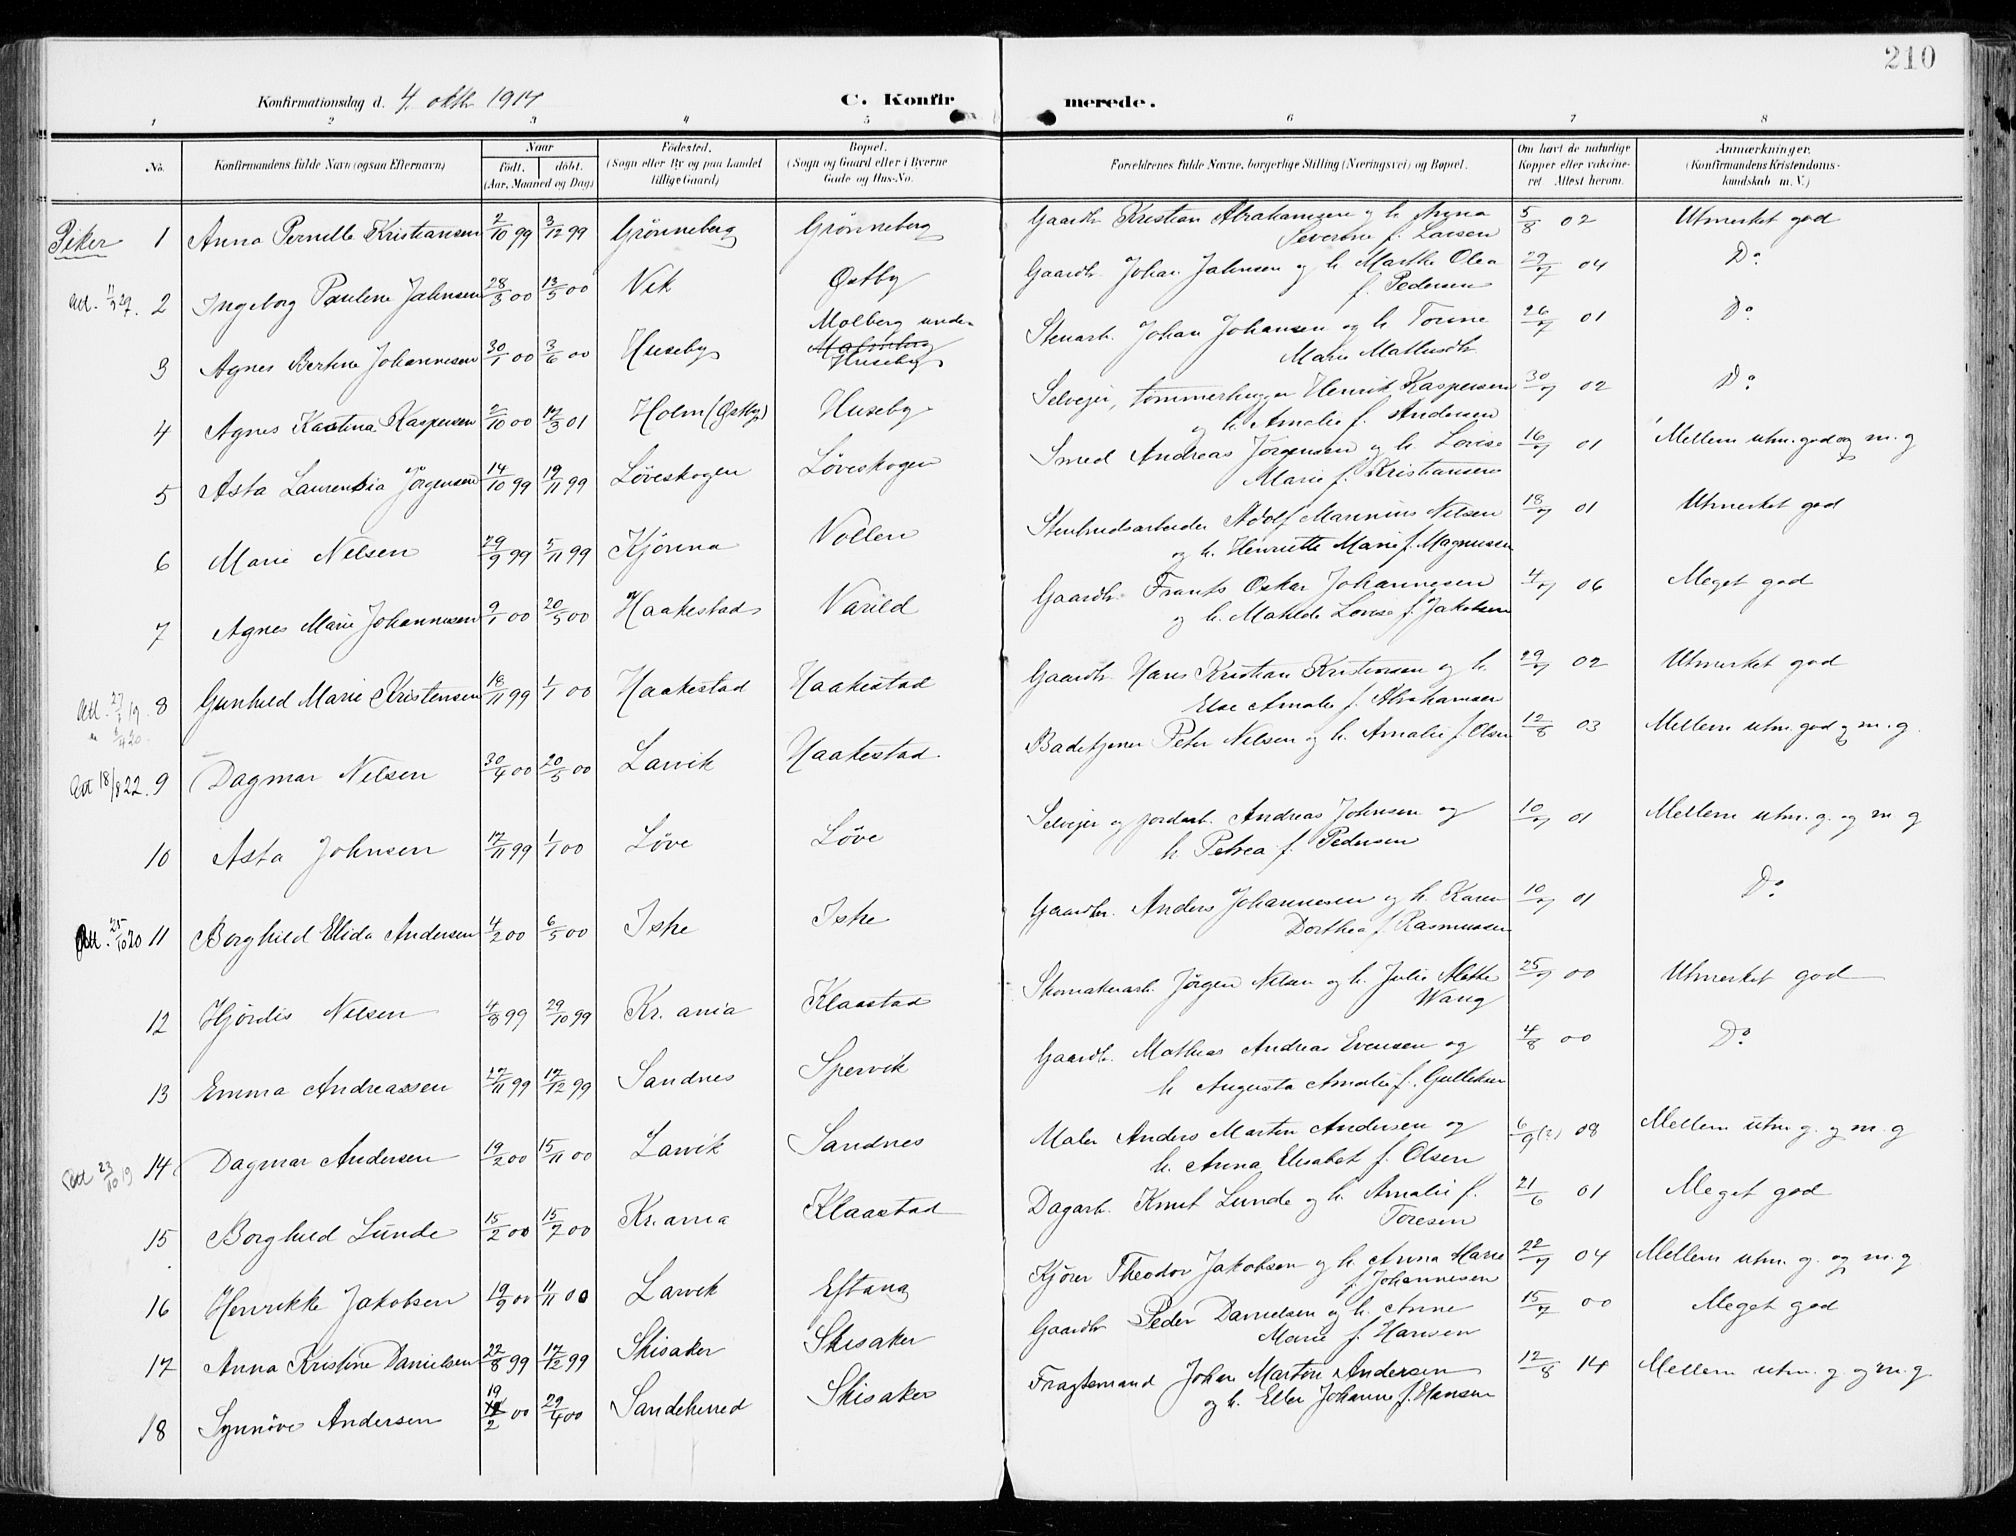 210
Konfirmationsdag d. 4. okth 1914 C. Konfirmerede.
1 2 3 4 5 6 7 8
No. Konfirmandens fulde Navn (ogsaa Efternavn) Naar Født. døbt. (Aar, Maaned og Dag) Fødested. (Sogn eller By og paa Landet tillige Gaard) Bopæl. (Sogn og Gaard eller i Byerne Gade og Hus-No. Forældrenes fulde Navne, borgerlige Stilling (Næringsvei) og Bopæl. Om havt de naturlige Kopper eller vakcineret Attest herom. Anmærkninger. (Konfirmandens Kristendomskundskab m. V.)
Piker 1 Anna Pernille Kristiansen 2/10 99 3/12 99 Grønneberg Grønneberg Gaardbr. Kristian Abrahamsen og h. Anna Severine f. Larsen 5/8 02 Utmerket god
Att. 11/3 27. 2 Ingeborg Pauline Jahnsen 28/3 00 13/5 00 Vik Østby Gaardbr. Johan Jahnsen og h. Marthe Olea f. Pedersen 29/7 04 Do
3 Agnes Bertine Johannesen 30/1 00 3/6 00 Huseby Molberg under Huseby Stenarb. Johan Johansen og h. Torine Marie Mathisdtr. 26/7 01 Do
4 Agnes Kastina Kaspersen 2/10 00 17/3 01 Holm (Østby) Huseby Selvejer, tømmerhugger Henrik Kaspersen og h. Amalie f. Andersen 30/7 02 Do
5 Asta Laurentia Jørgensen 14/10 99 19/11 99 Løveskogen Løveskogen Smed Andreas Jørgensen og h. Lovise Marie f. Kristiansen 16/7 01 Mellem utm. god og m. g
6 Marie Nilsen 29/9 99 5/11 99 Kjønna Vollen Stenbrudsarbeider Adolf Marinius Nilsen og h. Henriette Marie f. Magnusen 18/7 01 Utmerket god
7 Agnes Marie Johannesen 9/1 00 20/5 00 Haakestad Varild Gaardbr. Frants Oskar Johannesen og h. Matilde Lovise f. Jakobsen 4/7 06 Meget god
Att. 27/3 19. " 4 20 8 Gunhild Marie Kristensen 18/11 99 1/1 00 Haakestad Haakestad Gaardbr. Hans Kristian Kristensen og h. Else Amalie f. Abrahamsen 29/7 02 Utmerket god
Att 18/8 22. 9 Dagmar Nilsen 30/4 00 20/5 00 Larvik Haakestad. Badetjener Peter Nilsen og h. Amalie f. Olsen 12/8 03 Mellem utm. god og m. g.
10 Asta Johnsen 17/11 99 1/1 00 Løve Løve Selvejer og jordarb. Andreas Johnsen og h. Petrea f. Pedersen 10/7 01 Mellem utm. g. og m g
Att. 25/10 20 11 Borghild Elida Andersen 4/2 00 6/5 00 Iske Iske Gaardbr. Anders Johannesen og h. Karen Dorthea f. Rasmussen 10/7 01 Do
12 Hjørdis Nilsen 4/8 99 29/10 99 Kr.ania Klaastad Skomakerarb. Jørgen Nilsen og h. Julie Mathe Wang 25/7 00 Utmerket god
13 Emma Andreassen 17/11 99 17/12 99 Sandnes Spervik Gaardbr. Mathias Andreas Evensen og h. Augusta Amalie f. Gulliksen 4/8 00 Do
Att 23/10 19 14 Dagmar Andersen 19/2 00 15/11 00 Larvik Sandnes Maler Anders Martin Andersen og h. Anna Elisabet f. Olsen 6/9 (?) 08 Mellem utm g. og m. g
15 Borghild Lunde 15/2 00 15/7 00 Kr.ania Klaastad Dagarb. Knut Lunde og h. Amalie f. Toresen 21/6 01 Meget god
16 Henrikke Jakobsen 19/9 00 11/11 00 Larvik Eftang Kjører Theodor Jakobsen og h. Anna Marie f. Johannesen 22/7 04 Mellem utm. g. og m. g
17 Anna Kristine Danielsen 22/8 99 17/12 99 Skisaker Skisaker Gaardbr Peder Danielsen og h. Anne Marie f. Hansen 15/7 00 Meget god
18 Synnøve Andersen 19/2 00 29/4 00 Sandeherred Skisaker Fragtemand Johan Martin Andersen og h. Ellen Johanne f. Hansen 12/8 14 Mellem utm. g. og m. g